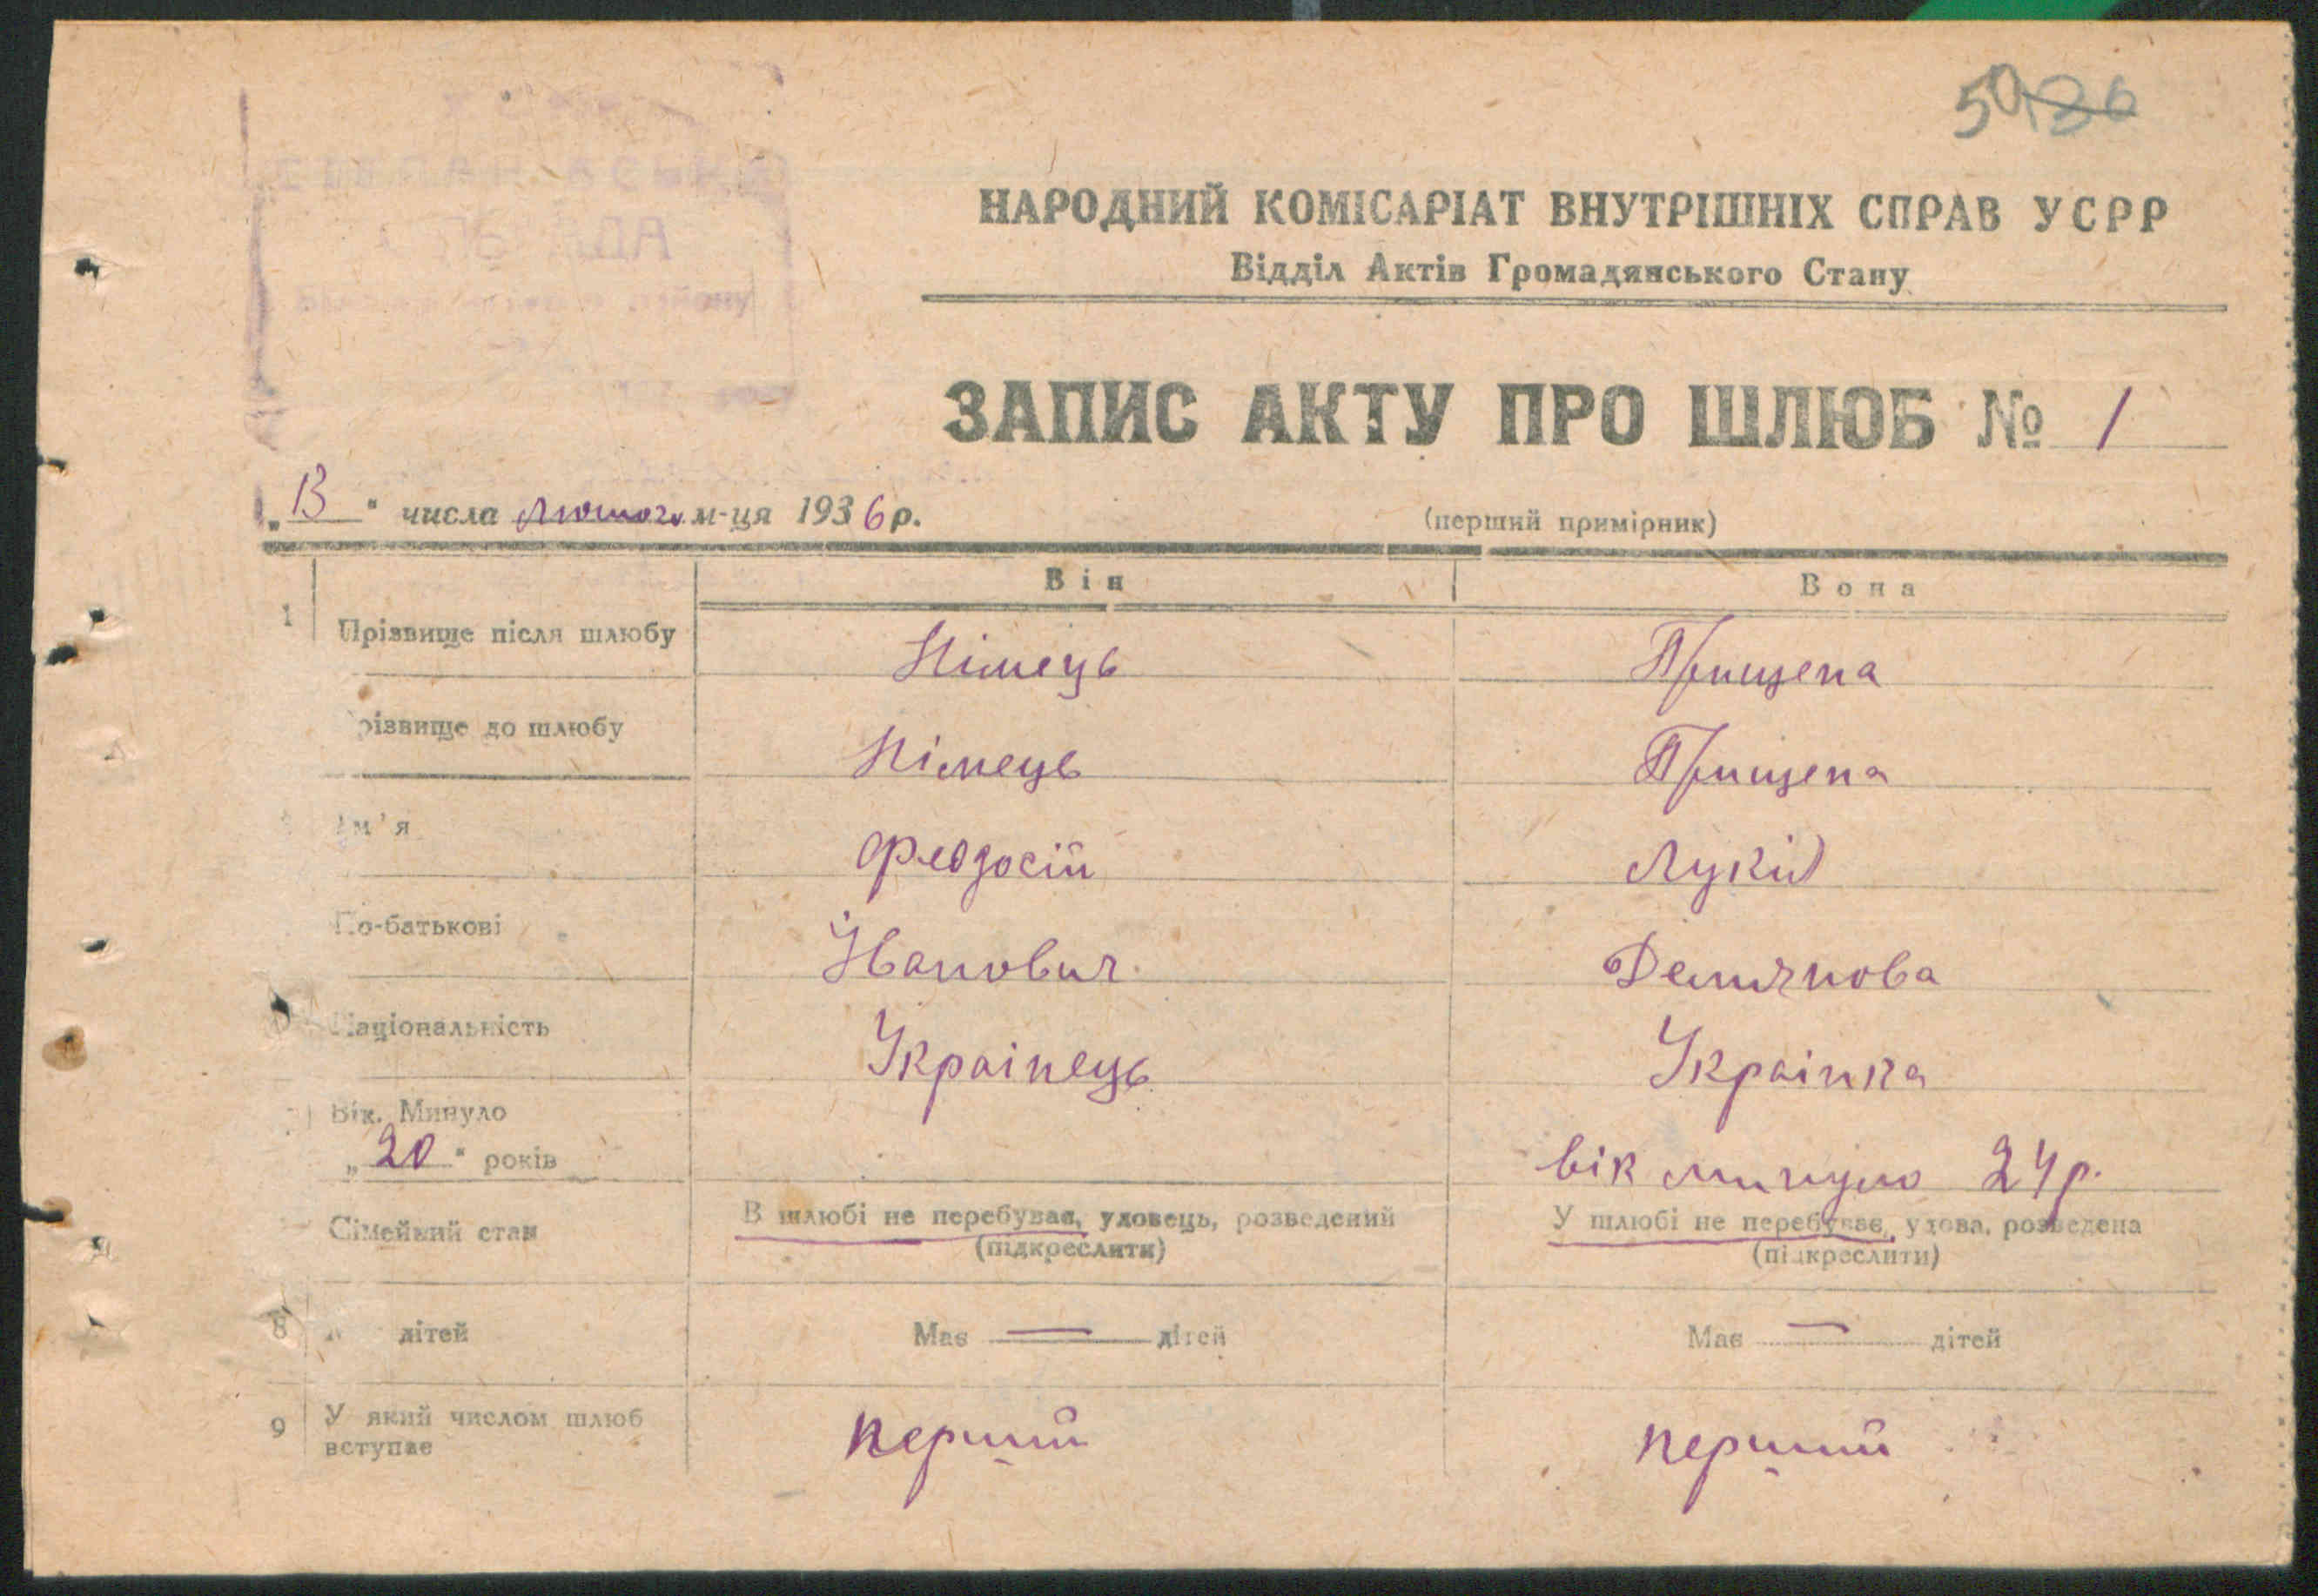 50
НАРОДНИЙ КОМІСАРІАТ ВНУТРІШНІХ СПРАВ УСРР
Відділ Актів Громадянського Стану
ЗАПИС АКТУ ПРО ШЛЮБ № 1
„13“ числа лютого м-ця 1936 р.
(перший примірник)
Він Вона
1 Прізвище після шлюбу Німець Прищепа
різвище до шлюбу Німець Прищепа
Ім'я Феодосій Лукія
По-батькові Йванович Демянова
Національність Українець Українка
Вік. Минуло
„20“ років вік минуло 24 р.
Сімейний стан В шлюбі не перебуває, удовець, розведений У шлюбі не перебуває, удова, розведена
(підкреслити) (підкреслити)
8 дітей Має — дітей Має — дітей
9 У який числом шлюб вступає перший перший